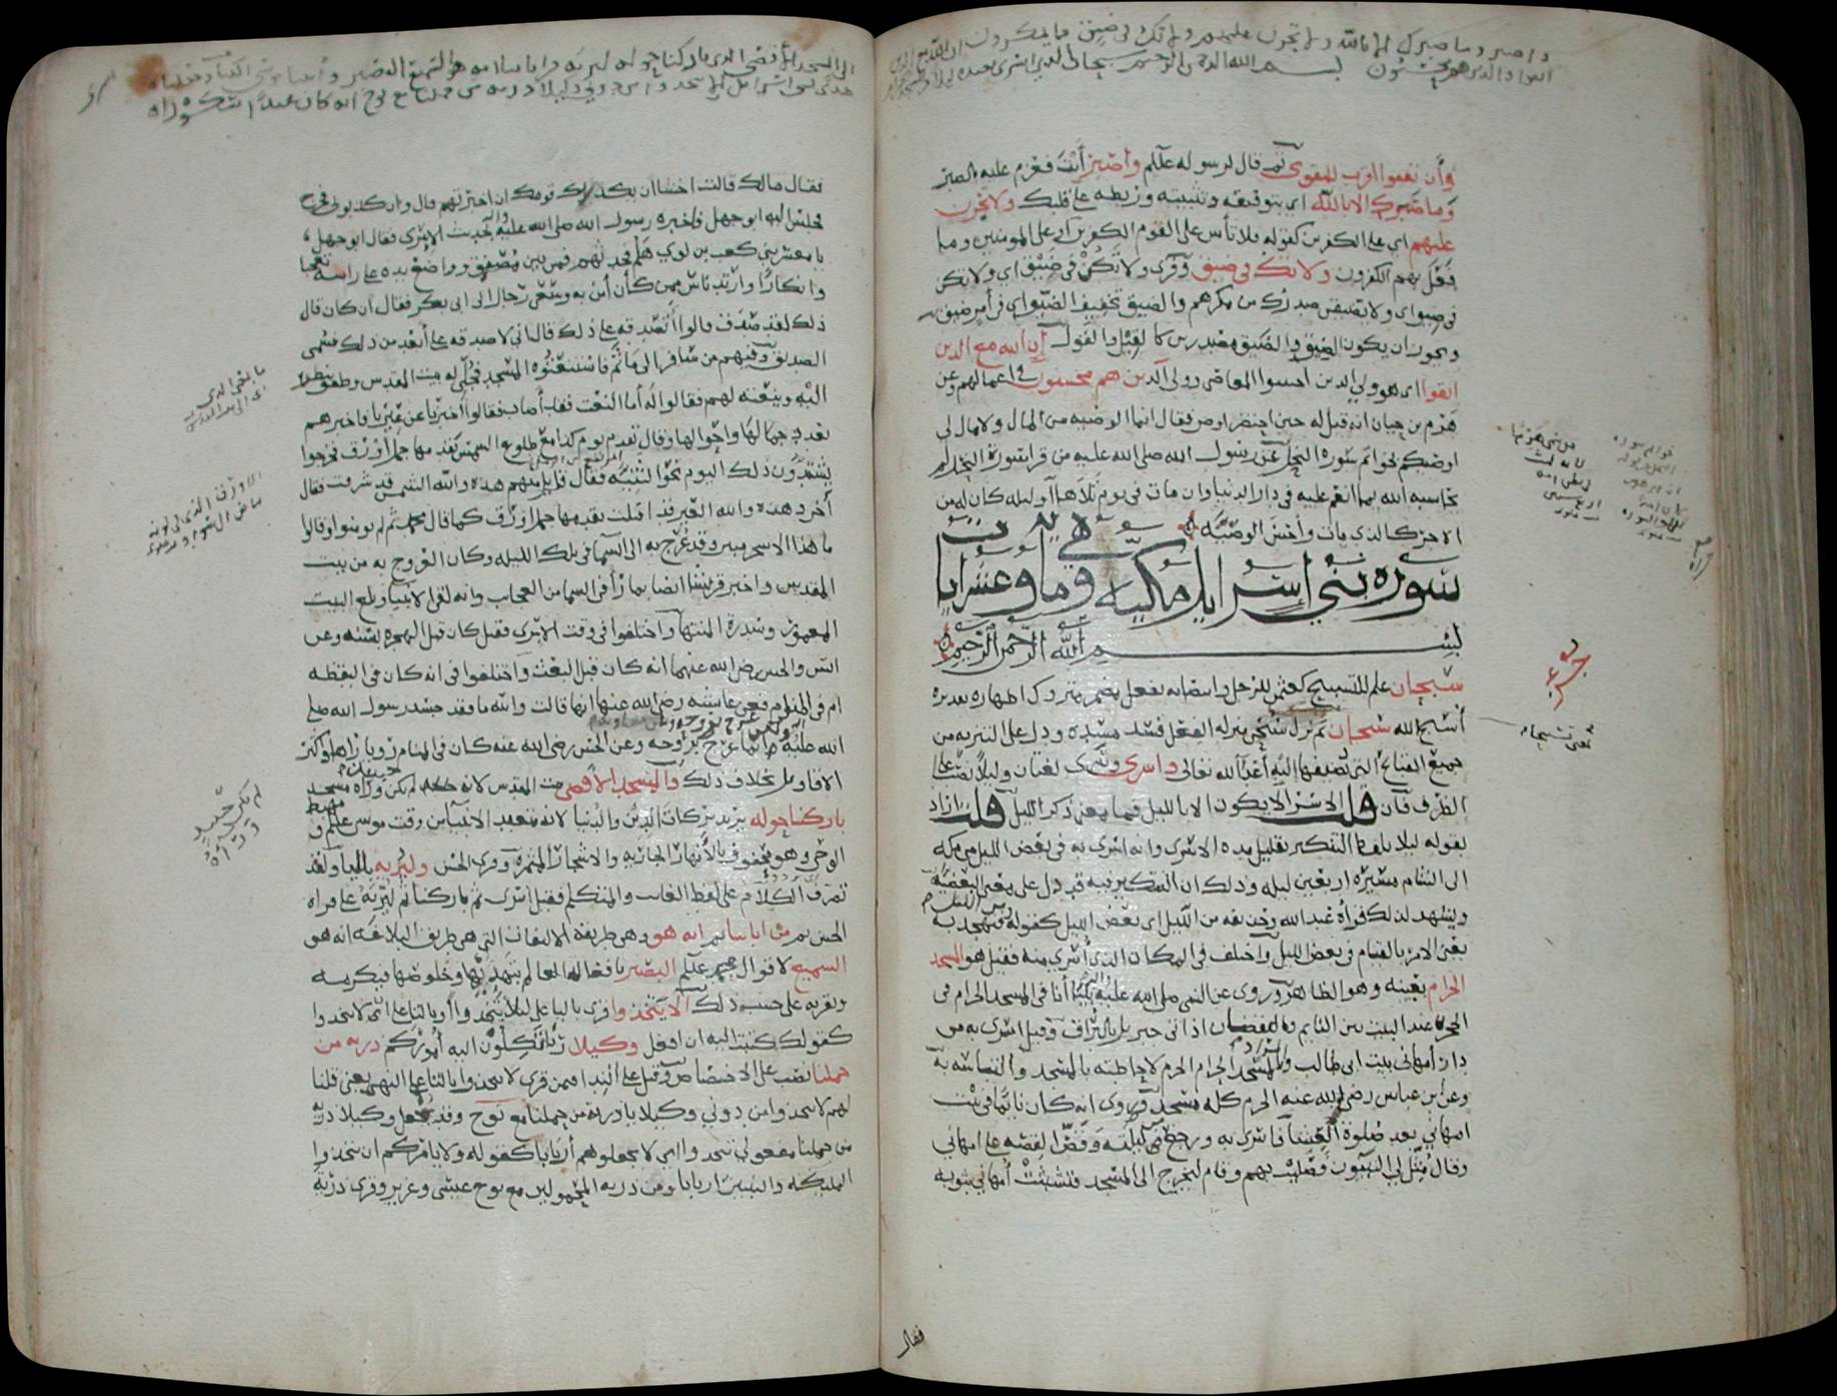 واصبر وما صبرك إلا بالله ولا تحزن عليهم ولا تك في ضيق مما يمكرون إن الله مع الذين
اتقوا والذين هم محسنون بسم الله الرحمن الرحيم سبحان الذي أسرى بعبده ليلا من المسجد الحرام
وأن تعفوا أقرب للتقوى ثم قال لرسوله عللم واصبر أنت فعزم عليه بالصبر
وما صبرك إلا بالله أي بتوفيقه وتثبيته وربطه على قلبك ولا تحزن
عليهم أي على الكفرين كقوله فلا تأس على القوم الكفرين أو على المومنين وما
فعل بهم الكفرون ولا تك في ضيق وقرى ولا تكن في ضيق أي ولا تكن
في ضيق أي ولا يضيقن صدرك من مكرهم والضيق تخفيف الضيق أي في أمر ضيق
ويجوز ان يكون الضيق والضيق مصدرين كالقيل والقول إن الله مع الذين
اتقوا أي هو ولي الذين اجتنبوا المعاصي وولي الذين هم محسنون في أعمالهم وعن
هرم بن حيان انه قيل له حين احتضر اوص فقال انما الوصية من المال ولا مال لي
اوصيكم بخواتم سورة النحل عن رسول الله صلى الله عليه من قرا سورة النحل لم
يحاسبه الله بما انعم عليه في دار الدنيا وان مات في يوم تلاها أو ليلة كان له من
الاجر كالذي مات وأحسن الوصية
سورة بني اسرايل مكية وهي مائة وعشر ايات
بسم الله الرحمن الرحيم
سبحان علم للتسبيح كعثمن للرجل وانتصابه بفعل مضمر متروك اظهاره تقديره
أسبح الله سبحان ثم نزل سبحان منزلة الفعل فسد مسده ودل على التنزيه من
جميع القبائح التي يضيفها إليه أعداء الله تعالى واسرى وسرى لغتان وليلا نصب على
الظرف فإن قلت الاسراء لا يكون الا بالليل فما معنى ذكر الليل قلت اراد
بقوله ليلا بلفظ التنكير تقليل مدة الاسرى وانه اسرى به في بعض الليل من مكة
الى الشام مسيرة اربعين ليلة وذلك ان التنكير فيه قد دل على معنى البعضية
ويشهد لذلك قراة عبد الله وحذيفة من الليل أي بعض الليل كقوله ومن الليل فتهجد به
يعني الامر بالقيام في بعض الليل واختلف في المكان الذي أسري منه فقيل هو المسجد
الحرام بعينه وهو الظاهر وروي عن النبي صلى الله عليه بينا أنا في المسجد الحرام في
الحجر عند البيت بين النايم واليقظان اذ اتاني جبريل بالبراق وقيل اسري به من
دار أم هاني بنت ابي طالب والمراد بالمسجد الحرام الحرم لاحاطته بالمسجد والتباسه به
وعن بن عباس رضي الله عنه الحرم كله مسجد وروى انه كان نايما في بيت
ام هاني بعد صلوة العشا فاسري به ورجع من ليلته وقص القصة على ام هاني
وقال مثل لي النبيون فصليت بهم وقام ليخرج الى المسجد فتشبثت أم هاني بثوبه
فقال
يعني تسبيحا
الى المسجد الأقصى الذي باركنا حوله لنريه من اياتنا انه هو السميع البصير وآتينا موسى الكتاب وجعلناه
هدى لبني اسرائل ألا تتخذوا من دوني وكيلا ذرية من حملنا مع نوح انه كان عبدا شكورا
فقال مالك قالت اخشى ان يكذبك قومك ان اخبرتهم قال وان كذبوني فخرج
فجلس اليه ابو جهل فاخبره رسول الله صلى الله عليه بحديث الاسرى فقال ابو جهل
يا معشر بني كعب بن لوي هلم فحدثهم فمن بين مصفق وواضع يده على راسه تعجبا
وانكارا وارتد ناس ممن كان أمن به وسعى رجال الى ابي بكر فقال ان كان قال
ذلك لقد صدق قالوا أتصدقه على ذلك قال اني لاصدقه على أبعد من ذلك فسمي
الصديق وفيهم من سافر الى ما ثم فاستنعتوه المسجد فجلي له بيت المقدس وطفق ينظر
اليه وينعته لهم فقالوا له أما النعت فقد أصاب فقالوا أخبرنا عن عيرنا فاخبرهم
بعدد جمالها واحوالها وقال تقدم يوم كذا مع طلوع الشمس يقدمها جمل أورق فخرجوا
يشتدون ذلك اليوم نحو الثنية فقال قائل منهم هذه والله الشمس قد شرقت فقال
أخر وهذه والله العير قد اقبلت يقدمها جمل اورق كما قال محمد ثم لم يومنوا وقالوا
ما هذا الا سحر مبين وقد عرج به الى السما في تلك الليلة وكان العروج به من بيت
المقدس واخبر قريشا ايضا بما رأى في السما من العجايب وانه لقي الانبيا وبلغ البيت
المعمور وسدرة المنتهى واختلفوا في وقت الاسرى فقيل كان قبل الهجرة بسنة وعن
انس والحسن رضي الله عنهما انه كان قبل البعث واختلفوا في انه كان في اليقظة
ام في المنام فعن عايشة رضي الله عنها انها قالت والله ما فقد جسد رسول الله صلى
الله عليه وانما عرج بروحه وعن الحسن رضي الله عنه كان في المنام رويا رآها واكثر
الاقاويل بخلاف ذلك والمسجد الأقصى بيت المقدس لانه لم يكن حينئذ وراه مسجد
باركنا حوله يريد بركات الدين والدنيا لانه متعبد الانبيا من وقت موسى علم ومهبط
الوحي وهو محفوف بالأنهار الجارية والاشجار المثمرة وقرى الحسن وليريه بالياء ولقد
تصرف الكلام على لفظ الغايب والمتكلم فقيل أسرى ثم باركنا ثم ليريه على قراة
الحسن ثم من اياتنا ثم انه هو وهي طريقة الالتفات التي هي طريق البلاغة انه هو
السميع لاقوال محمد علم البصير بافعاله العالم بتهذبها وخلوصها فيكرمه
ويقربه على حسب ذلك ألا يتخذوا قرى بالياء على ليلا يتخذوا وبالتا على أي لا تتخذوا
كقولك كتبت اليه ان افعل وكيلا ربا تكلون اليه أموركم ذرية من
حملنا نصب على الاختصاص وقيل على النداء فيمن قرى لا تتخذوا بالتا على النهي يعني قلنا
لهم لا تتخذوا من دوني وكيلا يا ذرية من حملنا مع نوح وقد يجعل وكيلا ذرية
من حملنا مفعولي تتخذوا أي لا تجعلوهم أربابا كقوله ولا يامركم ان تتخذوا
المليكة والنبيين اربابا ومن ذرية المحمولين مع نوح عيسى وعزير وقرى ذرية